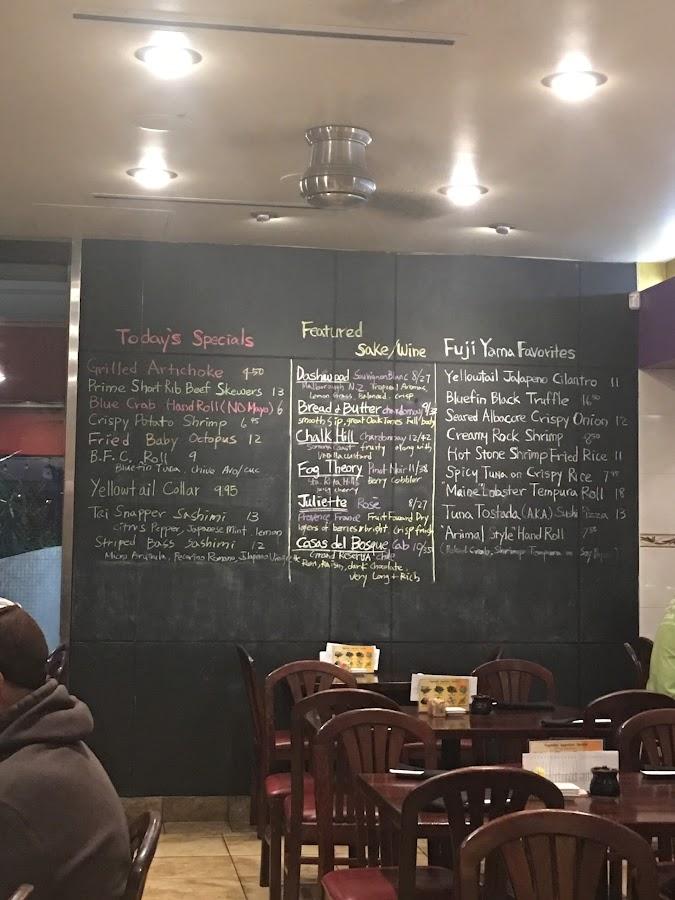 Today's Specials
Grilled Artichoke 9.50
Prime Short Rib Beef Skewers 13
Blue Crab Hand Roll (NO Mayo) 6
Crispy Potato Shrimp 6.95
Fried Baby Octopus 12
B.F.C. Roll 9
Bluefin Tuna, Chive Avo/Cuc
Yellowtail Collar 9.95
Tai Snapper Sashimi 13
Citrus Pepper, Japanese Mint, lemon
Striped Bass Sashimi 12
Micro Arugula, Pecorino Romano, Jalapeno
Featured
Sake/Wine
Dashwood Sauvignon Blanc 8/27
Malborough N.Z Tropical Aromas,
Lemon Grass, Balanced, crisp
Bread & Butter chardonnay
smooth sip, great Oak Tones Full body
Chalk Hill Chardonnay 12/42
Sonoma Coast fruity along with
Vanilla custard
Fog Theory Pinot Noir 11/38
Sta. Rita Hills Berry Cobbler
Juicy cherry
Juliette Rosé 8/27
Provence France Fruit Forward Dry
layers of berries bright crisp finish
Casas del Bosque Cab 10/35
Grand Reserva
Rum, Raisin, dark Chocolate
very Long + Rich
Fuji Yama Favorites
Yellowtail Jalapeno Cilantro 11
Bluefin Black Truffle 16.50
Seared Albacore Crispy Onion 12
Creamy Rock Shrimp
Hot Stone Shrimp Fried Rice 11
Spicy Tuna on Crispy Rice 7.95
"Maine" Lobster Tempura Roll 18
Tuna Tostada (AKA) Sushi Pizza 13
"Animal Style" Hand Roll